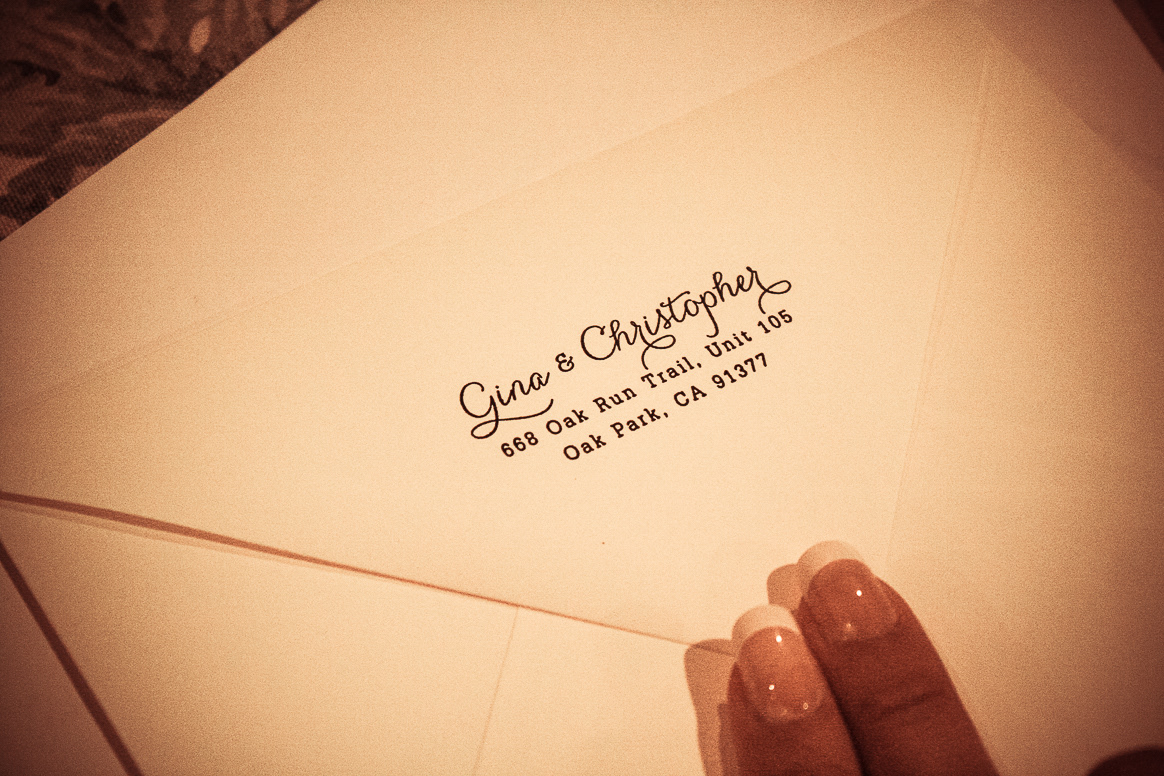 Gina & Christopher
668 Oak Run Trail, Unit 105
Oak Park, CA 91377